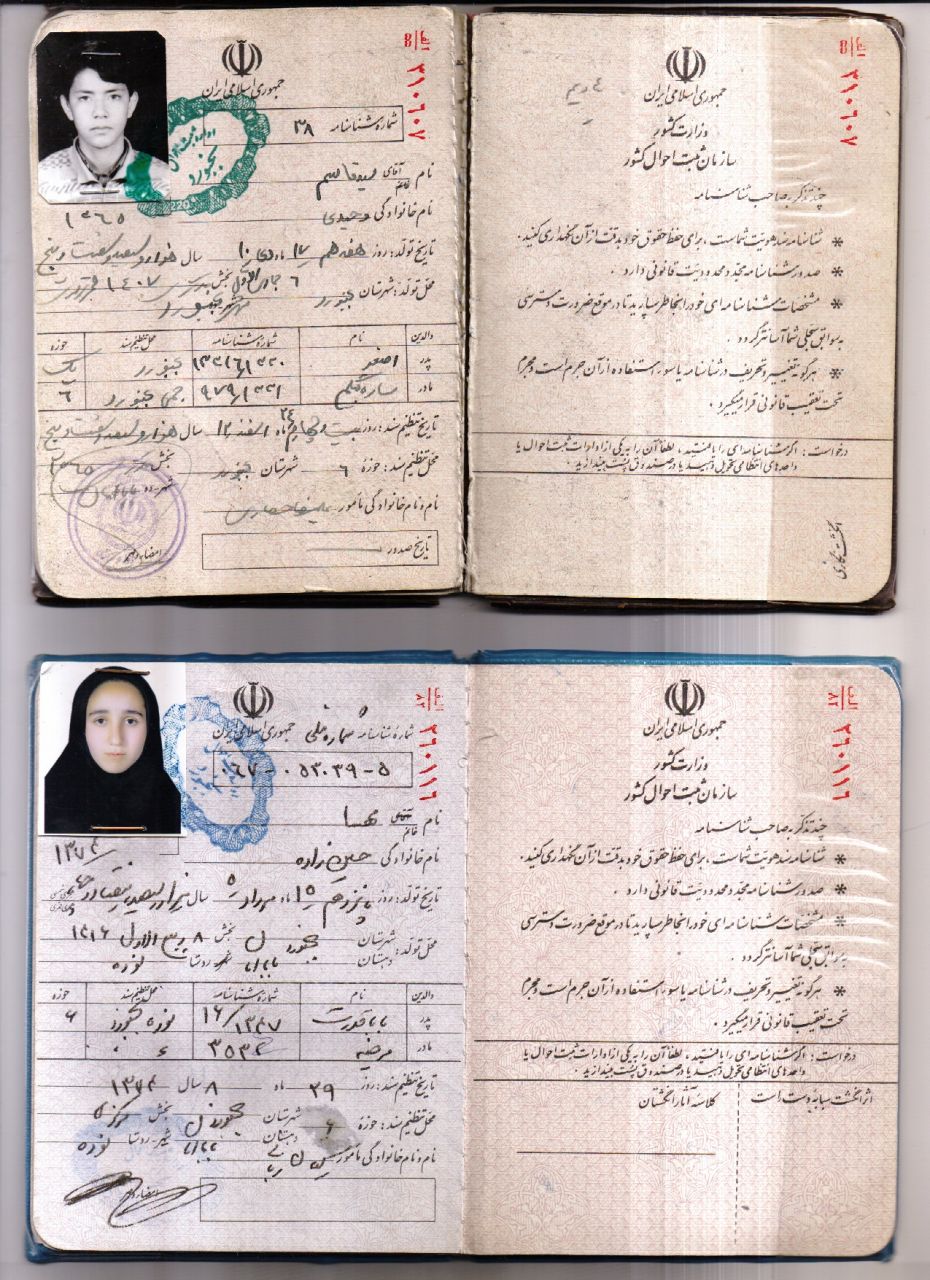 الف
8
۳۱۰۶۰۷
جمهوری اسلامی ایران
شماره شناسنامه ۳۸
نام آقای خانم
نام خانوادگی وحیدی
۱۳۶۵
تاریخ تولد: روز هفدهم ۱۷ ماه دی ۱۰ سال هزار و سیصد و شصت و پنج
محل تولد: شهرستان بجنورد ۶ بخش ۱۴۰۷
والدین نام شماره شناسنامه محل تنظیم سند حوزه
پدر اصغر بجنورد یک
مادر بجنورد ۶
تاریخ تنظیم سند: روز بیست و چهارم ۲۴ ماه اسفند ۱۲ سال هزار و سیصد و شصت و پنج
محل تنظیم سند: حوزه ۶ شهرستان بجنورد بخش
نام و نام خانوادگی مأمور
تاریخ صدور
الف
8
۳۱۰۶۰۷
جمهوری اسلامی ایران
وزارت کشور
سازمان ثبت احوال کشور
چند تذکر به صاحب شناسنامه
* شناسنامه سند هویت شماست، برای حفظ حقوق خود بدقت از آن نگهداری کنید.
* صدور شناسنامه مجدد محدودیت قانونی دارد.
* مشخصات شناسنامه ای خود را بخاطر بسپارید تا در موقع ضرورت دسترسی
به سوابق سجلی شما آسانتر گردد.
* هرگونه تغییر و تحریف در شناسنامه یا سوء استفاده از آن جرم است و مجرم
تحت تعقیب قانونی قرار میگیرد.
درخواست: اگر شناسنامه ای را یافتید، لطفاً آن را به یکی از ادارات ثبت احوال یا
واحدهای انتظامی تحویل دهید یا در صندوق پست بیندازید.
الف
۸۲
۳۶۰۱۱۶
جمهوری اسلامی ایران
شماره شناسنامه شماره ملی
۰۶۷-۰۵۳۰۳۹-۵
نام آقای خانم مهسا
نام خانوادگی حسین زاده
۱۳۷۴
تاریخ تولد: روز پانزدهم ۱۵ ماه مرداد ۵ سال
محل تولد: شهرستان بجنورد بخش ۸ ربیع الاول ۱۴۱۶
دهستان شهر-روستا نوده
والدین نام شماره شناسنامه محل تنظیم سند حوزه
پدر ۱۳۴۷ نوده بجنورد ۶
مادر مرضیه
تاریخ تنظیم سند: روز ۲۹ ماه ۸ سال ۱۳۷۴
محل تنظیم سند: حوزه ۶ شهرستان بجنورد بخش مرکزی
دهستان شهر-روستا نوده
نام و نام خانوادگی مأمور
الف
۸۲
۳۶۰۱۱۶
جمهوری اسلامی ایران
وزارت کشور
سازمان ثبت احوال کشور
چند تذکر به صاحب شناسنامه
* شناسنامه سند هویت شماست، برای حفظ حقوق خود بدقت از آن نگهداری کنید.
* صدور شناسنامه مجدد محدودیت قانونی دارد.
* مشخصات شناسنامه ای خود را بخاطر بسپارید تا در موقع ضرورت دسترسی
به سوابق سجلی شما آسانتر گردد.
* هرگونه تغییر و تحریف در شناسنامه یا سوء استفاده از آن جرم است و مجرم
تحت تعقیب قانونی قرار میگیرد.
درخواست: اگر شناسنامه ای را یافتید، لطفاً آن را به یکی از ادارات ثبت احوال یا
واحدهای انتظامی تحویل دهید یا در صندوق پست بیندازید.
اثر انگشت سبابه دست راست
کلاسه آثار انگشتان